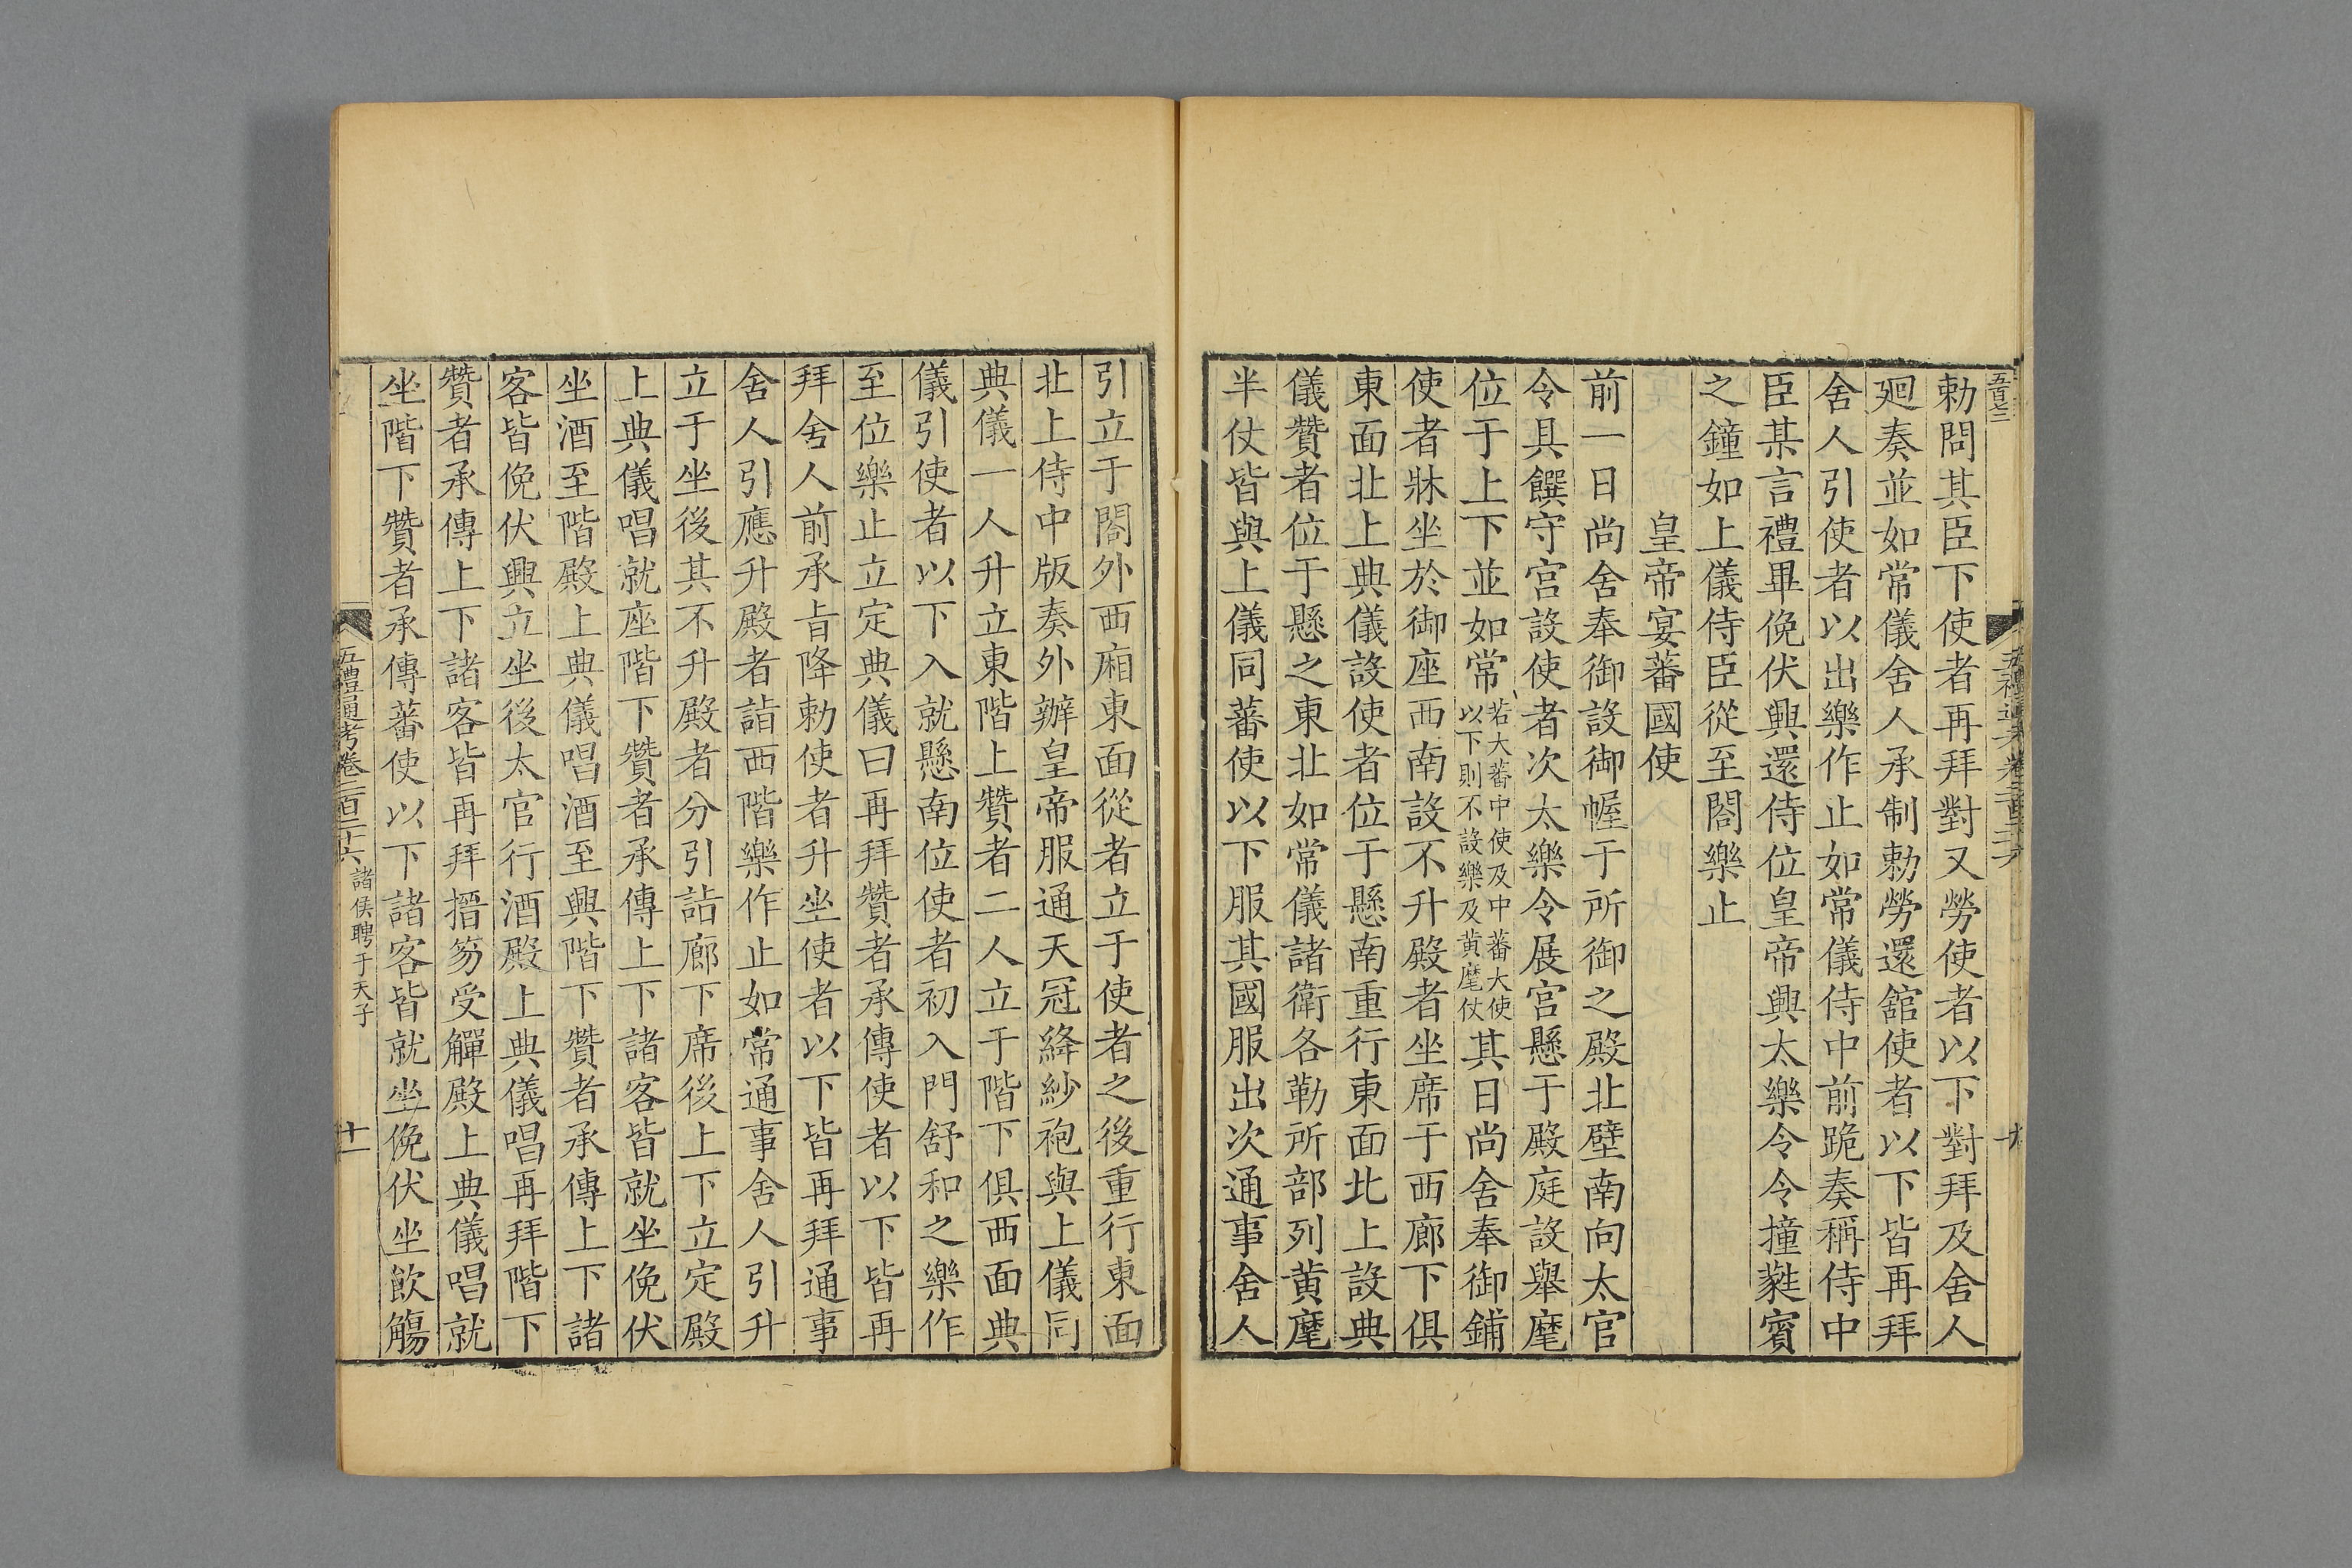 勅問其臣下使者再拜對又勞使者以下對拜及舍人
廻奏並如常儀舍人承制勅勞還舘使者以下皆再拜
舍人引使者以出樂作止如常儀侍中前跪奏稱侍中
臣某言禮畢俛伏興還侍位皇帝興太樂令令撞蕤賓
之鐘如上儀侍臣從至閤樂止
皇帝宴蕃國使
前一日尚舍奉御設御幄于所御之殿北壁南向太官
令具饌守宮設使者次太樂令展宮懸于殿庭設舉麾
位于上下並如常若大蕃中使及中蕃大使以下則不設樂及黄麾仗其日尚舍奉御鋪
使者牀坐於御座西南設不升殿者坐席于西廊下俱
東面北上典儀設使者位于懸南重行東面北上設典
儀贊者位于懸之東北如常儀諸衛各勒所部列黄麾
半仗皆與上儀同蕃使以下服其國服出次通事舍人
引立于閤外西廂東面從者立于使者之後重行東面
北上侍中版奏外辦皇帝服通天冠絳紗袍與上儀同
典儀一人升立東階上贊者二人立于階下俱西面典
儀引使者以下入就懸南位使者初入門舒和之樂作
至位樂止立定典儀曰再拜贊者承傳使者以下皆再
拜舍人前承旨降勅使者升坐使者以下皆再拜通事
舍人引應升殿者詣西階樂作止如常通事舍人引升
立于坐後其不升殿者分引詣廊下席後上下立定殿
上典儀唱就座階下贊者承傳上下諸客皆就坐俛伏
坐酒至階殿上典儀唱酒至興階下贊者承傳上下諸
客皆俛伏興立坐後太官行酒殿上典儀唱再拜階下
贊者承傳上下諸客皆再拜搢笏受觶殿上典儀唱就
坐階下贊者承傳蕃使以下諸客皆就坐俛伏坐飲觴
五禮通考卷二百二十六 諸侯聘于天子 十一